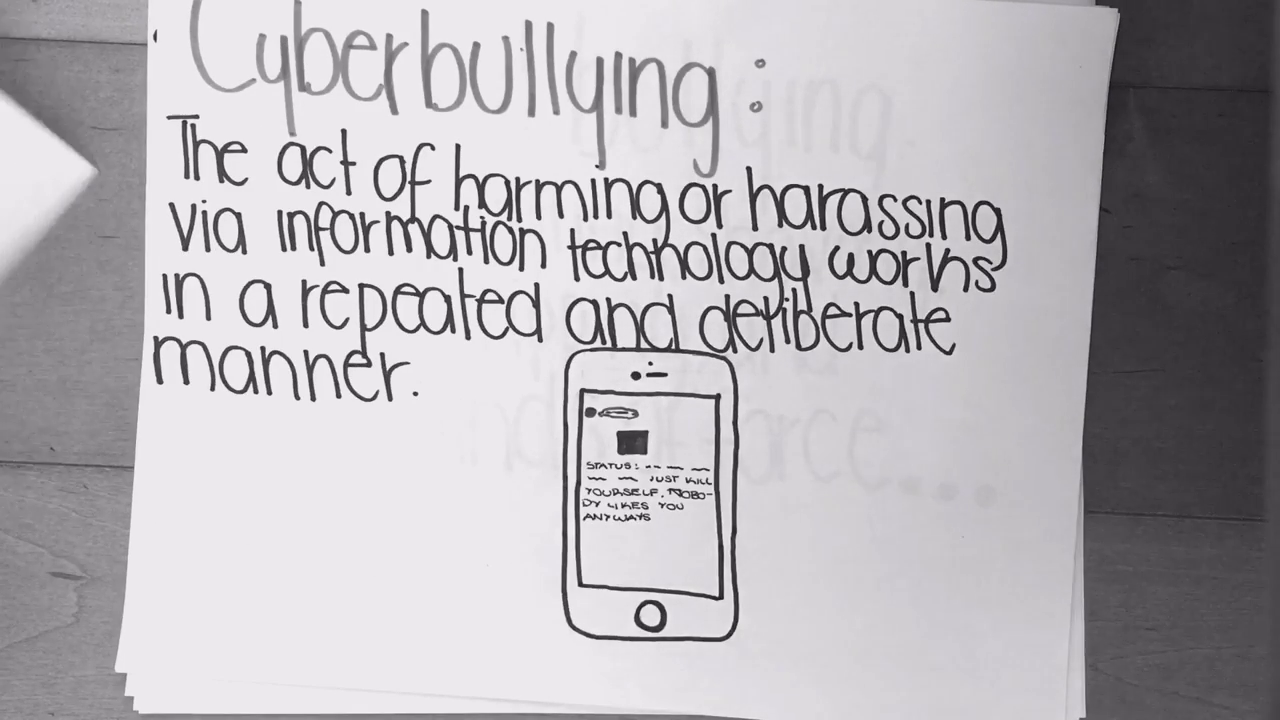 Cyberbullying:
The act of harming or harassing
via information technology works
in a repeated and deliberate
manner.
STATUS:
JUST KILL
YOURSELF. NOBO-
DY LIKES YOU
ANYWAYS